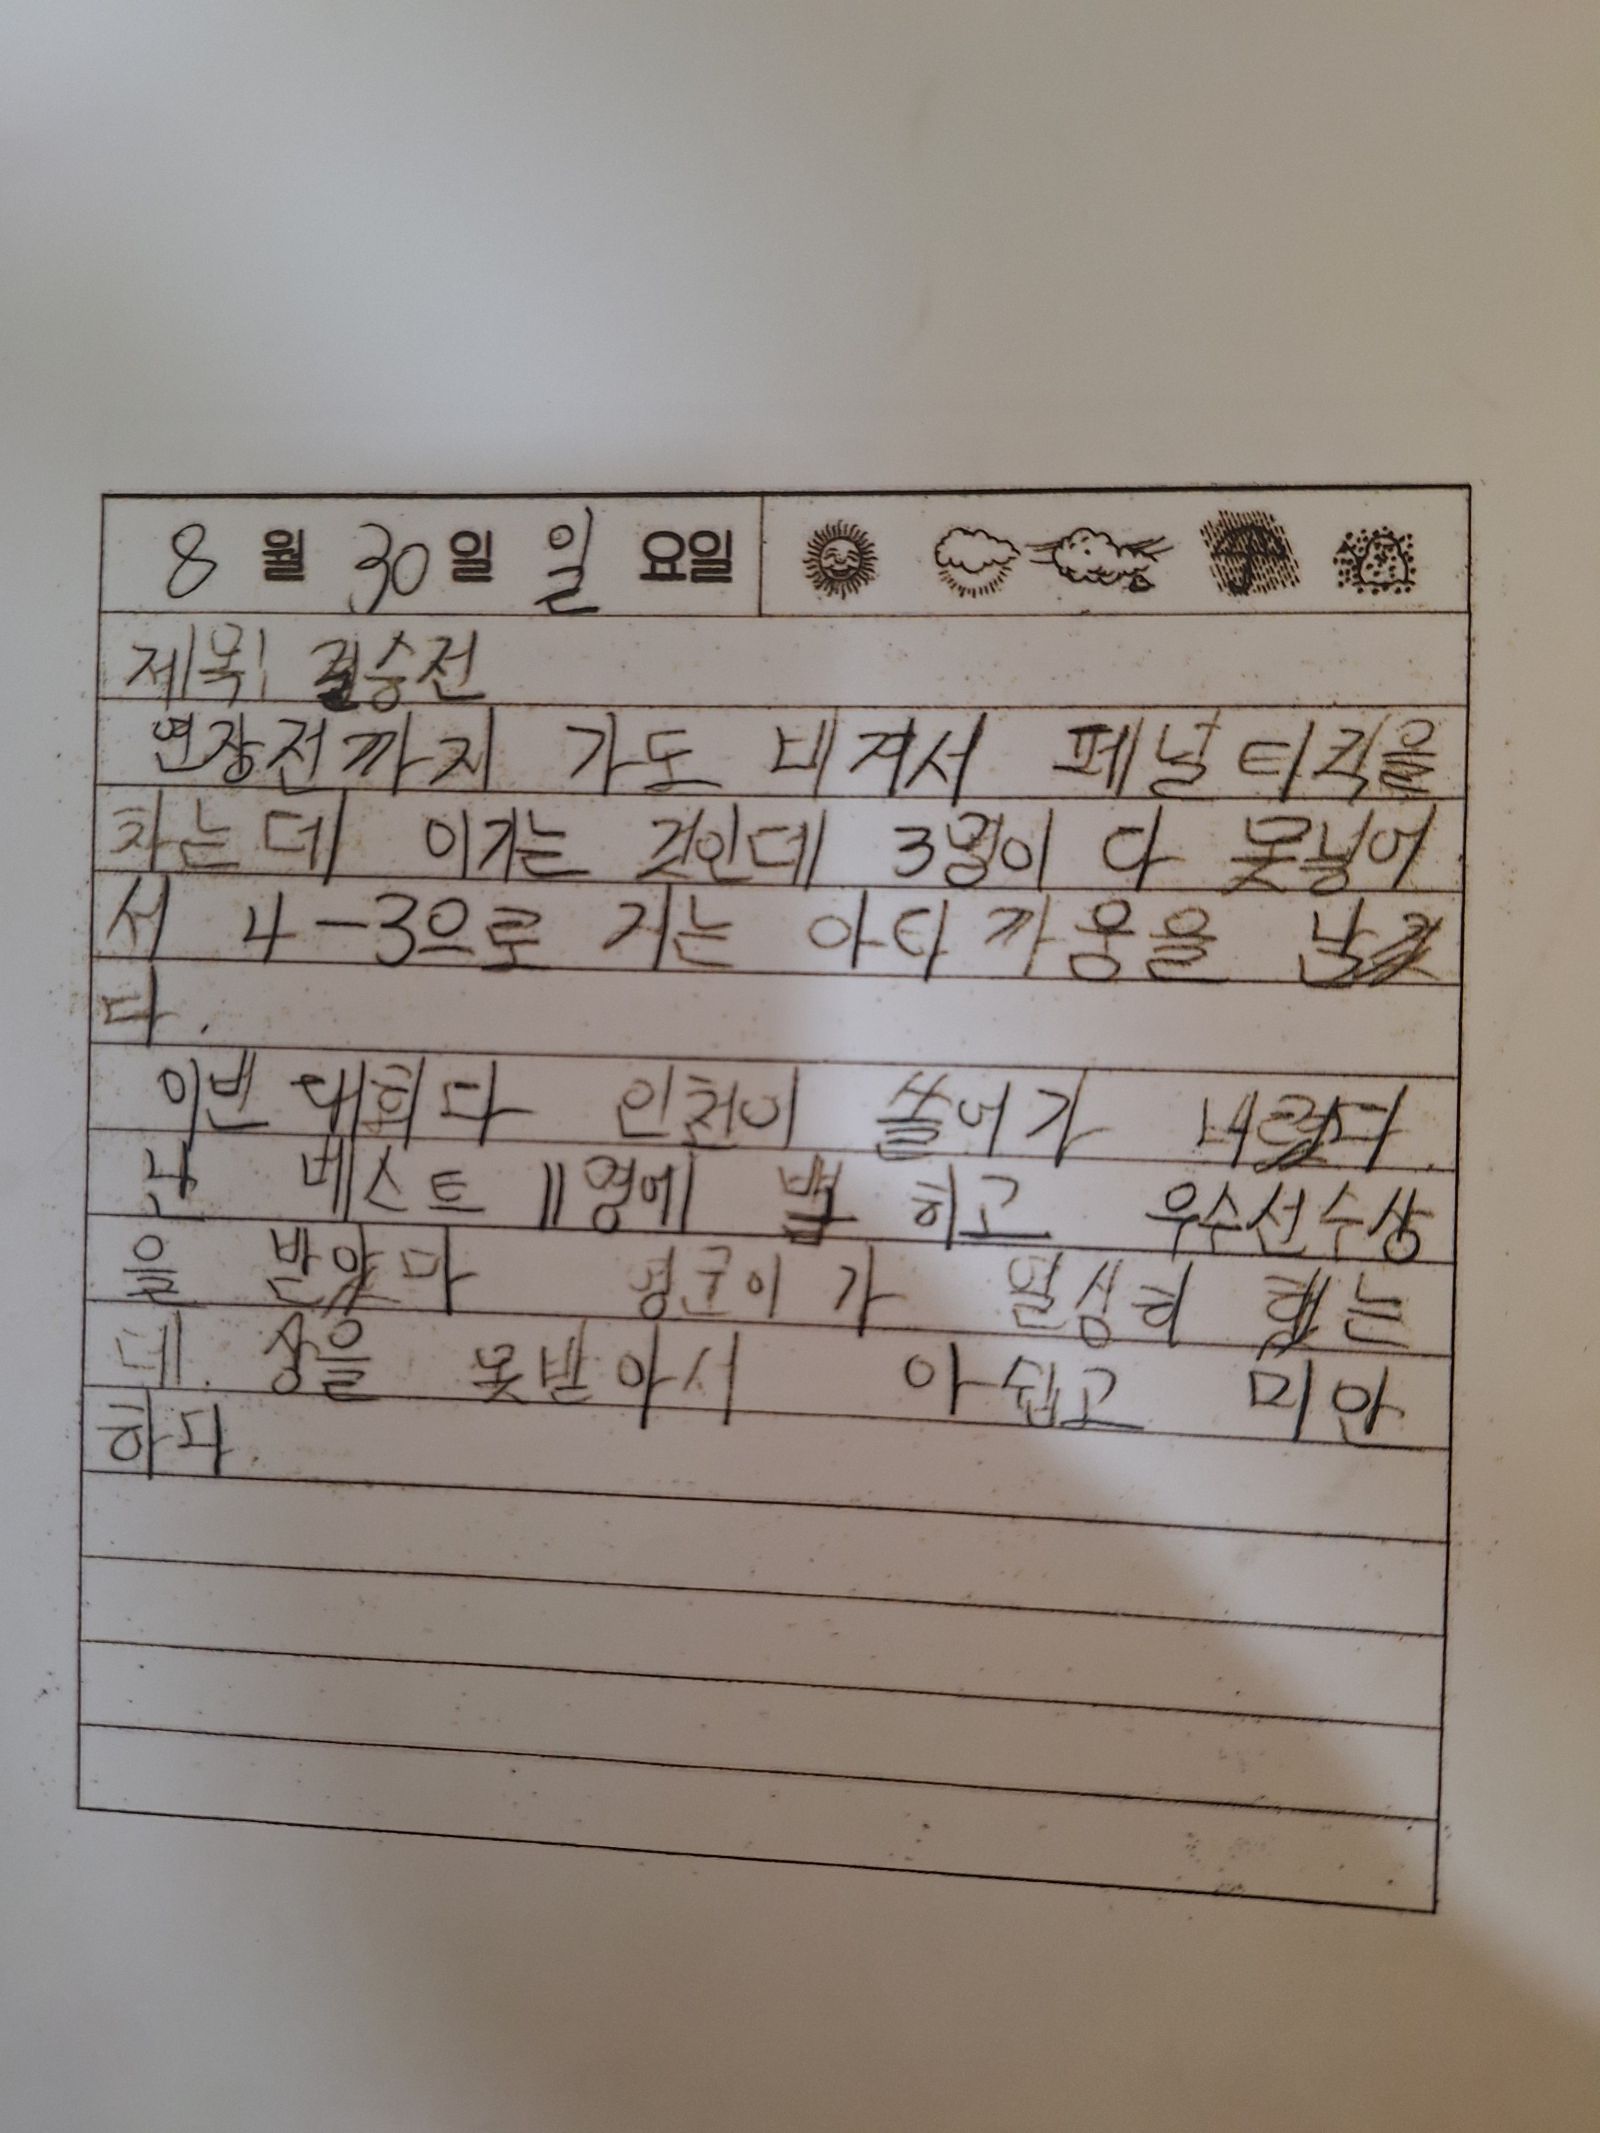 8 월 30 일 일 요일
제목: 결승전
연장전까지 가도 비겨서 페널티킥을
차는데 이기는 것인데 3명이 다 못넣어
서 4-3으로 지는 아타까움을
다.
이번 대회다 인천이 쓸어가 버렸다.
난 베스트 11명에 뽑히고 우수선수상
을 받았다 영균이가 열심히 했는
데. 상을 못받아서 아쉽고 미안
하다